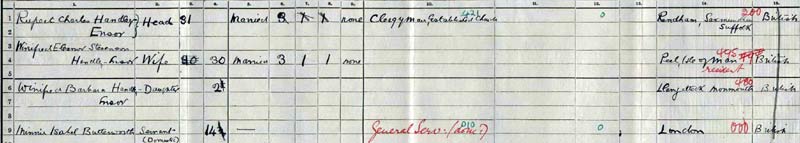 1 Rupert Charles Handley Head 31 Married 3 X X none Clergyman, Established Church 0 Rendham, Saxmundham 200 British
2 Ensor Suffolk
3 Winifred Eleanor Stevenson
4 Handley-Ensor Wife 30 Married 3 1 1 none Peel, Isle of Man 445 British
resident
6 Winifred Barbara Handley- Daughter 2 Llangattock Monmouth 480 British
7 Ensor
8
9 Minnie Isabel Butterworth Servant 14 — General Serv: (dom:) 010 0 London 000 British
(Domestic)